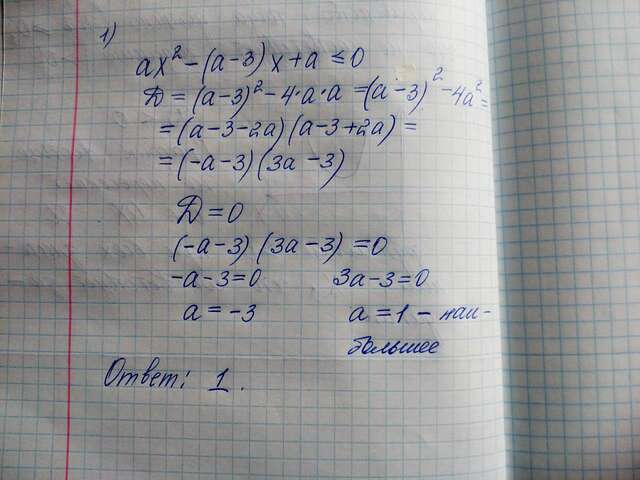 1)
ax² - (a-3)x + a ≤ 0
Д = (a-3)² - 4·a·a = (a-3)² - 4a² =
= (a-3-2a)(a-3+2a) =
= (-a-3)(3a-3)
Д = 0
(-a-3)(3a-3) = 0
-a-3=0 3a-3=0
a = -3 a = 1 - наи-
большее
Ответ: 1.